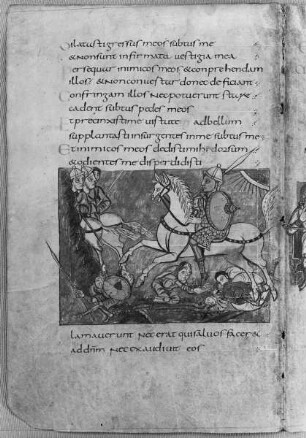 Dilatasti gressus meos subtus me
& non sunt infirmata vestigia mea
Persequar inimicos meos & conprehendam
illos & non convertar donec deficiant
Confringam illos nec potuerunt stare
cadent subtus pedes meos
& precinxisti me virtute ad bellum
supplantasti insurgentes in me subtus me
Et inimicos meos dedisti mihi dorsum
& odientes me disperdidisti
Clamaverunt nec erat qui salvos facer&
ad dnm nec exaudivit eos